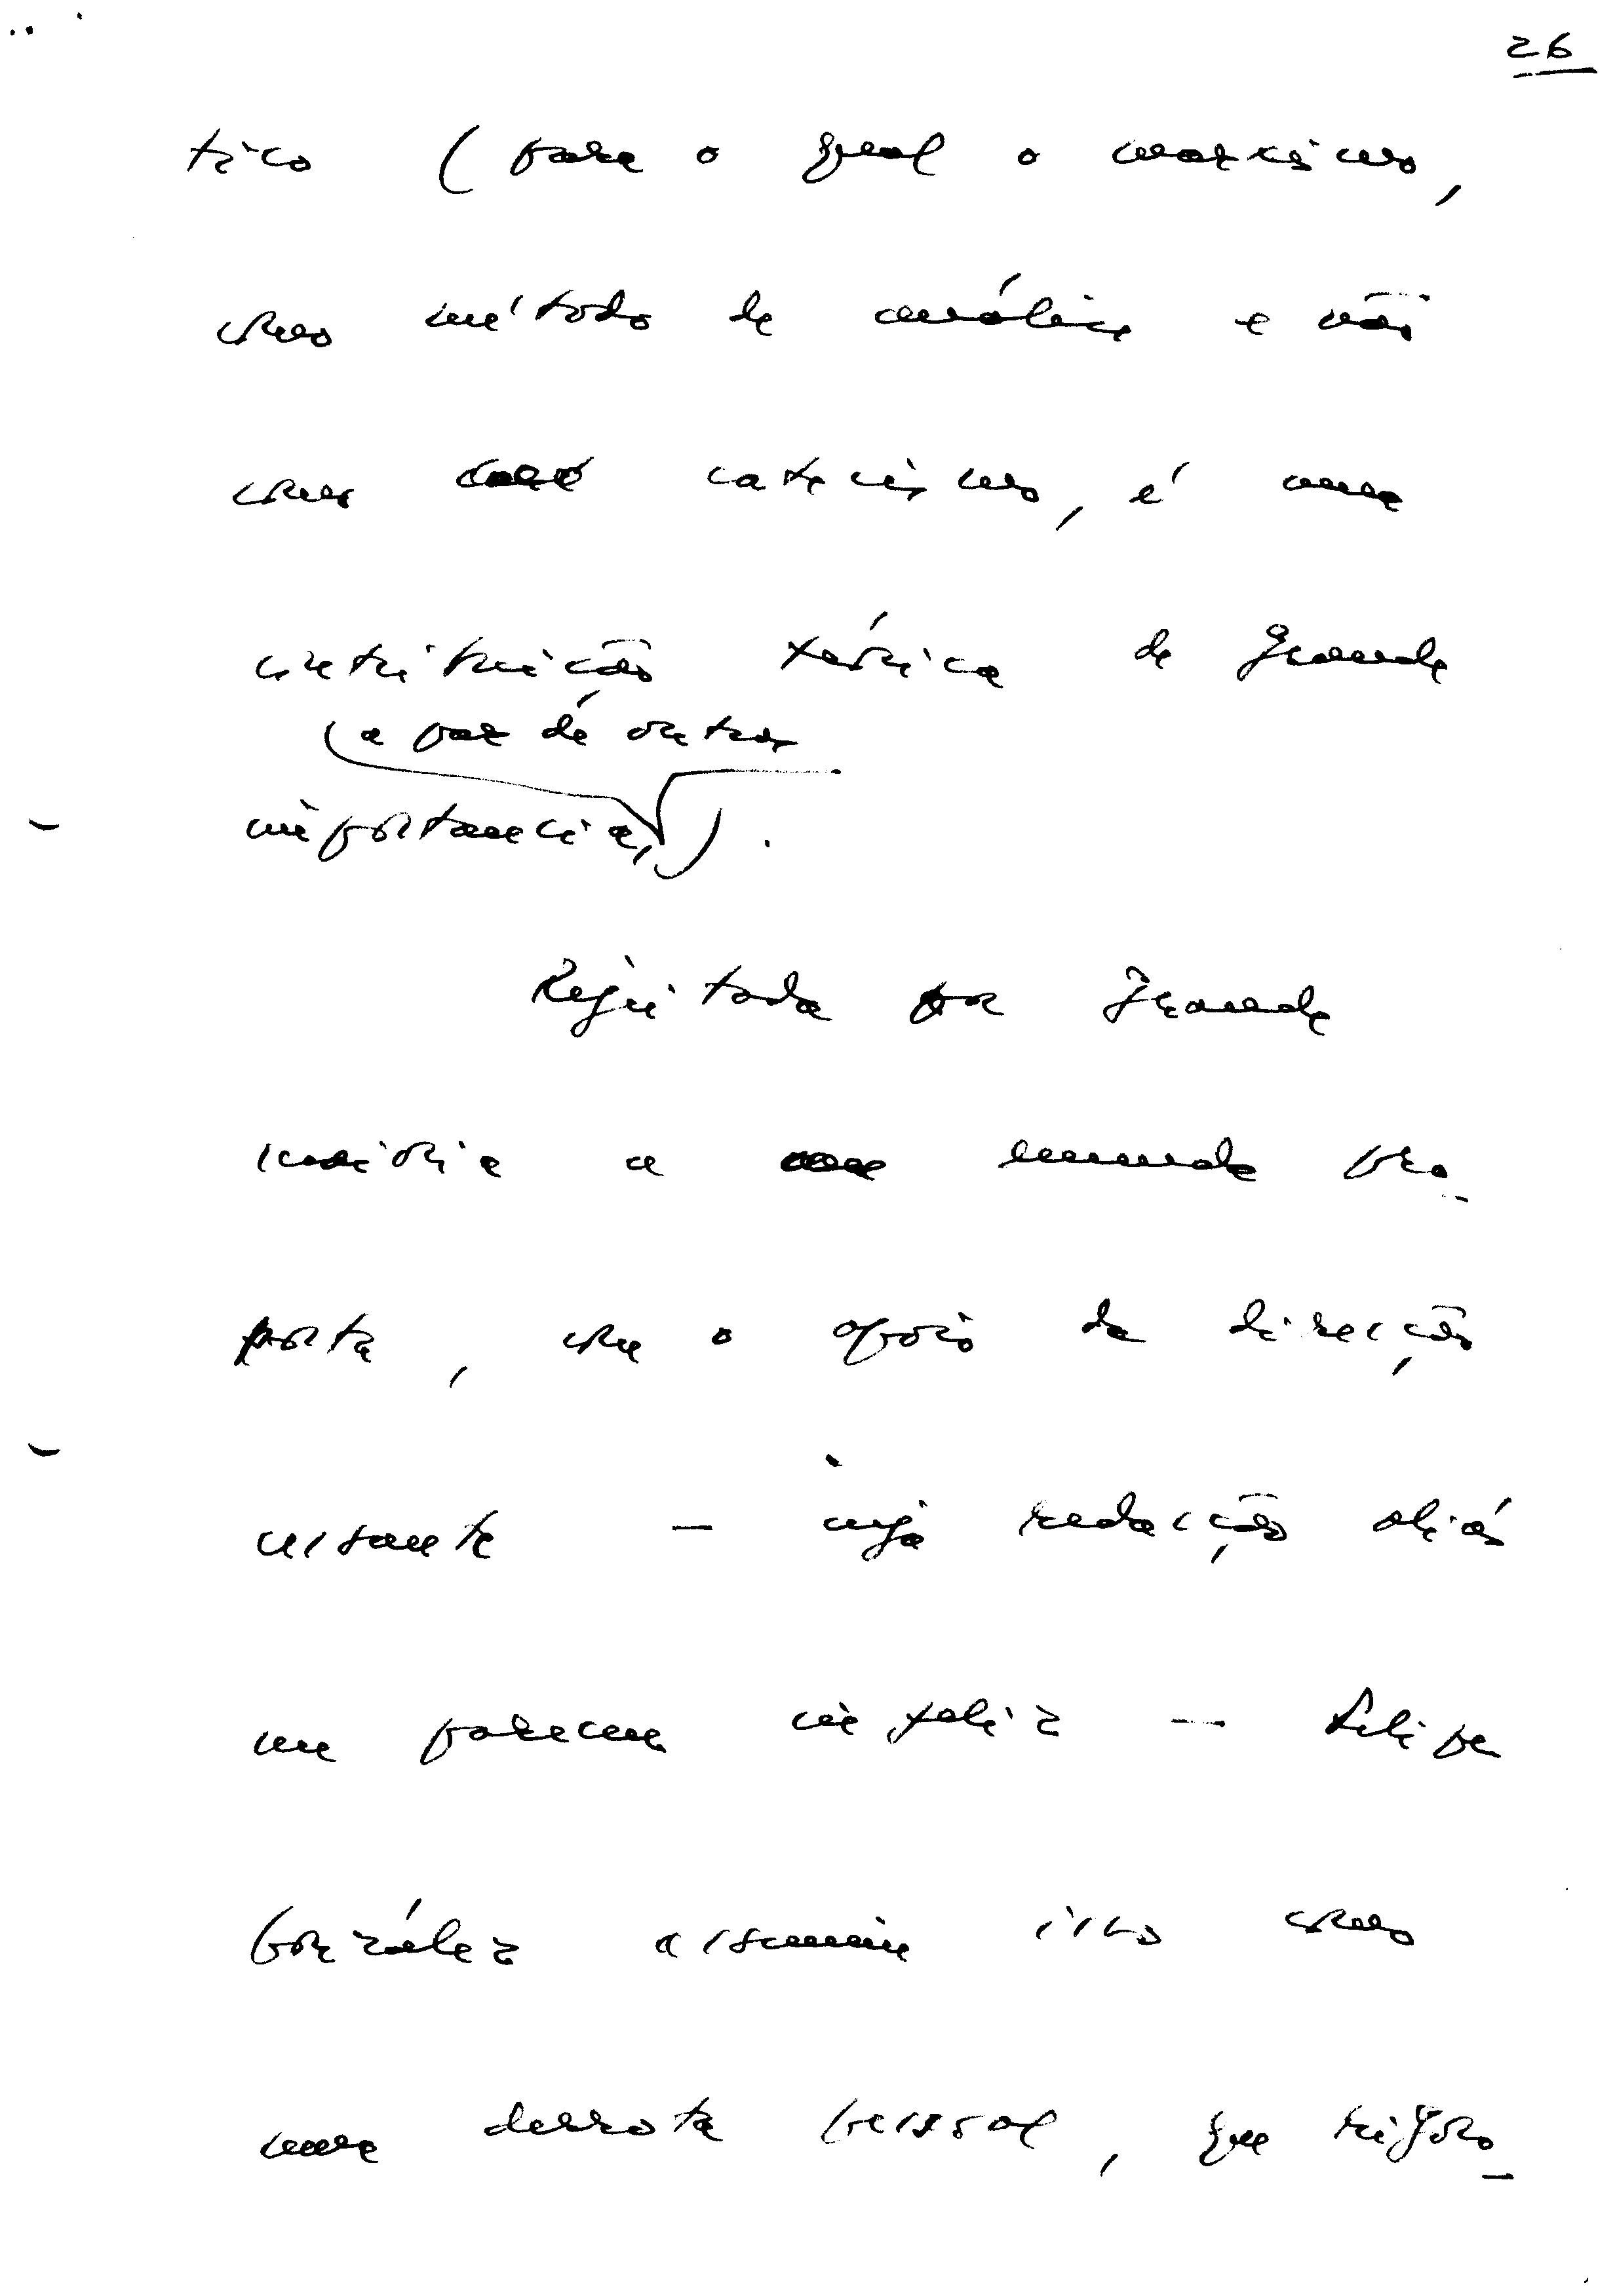 26
tico (para o qual o marxismo,
como método de análise e não
como catecismo, é uma
contribuição teórica de grande
(a par de outras
importancia, ).
Rejeitada por grande
maioria a emenda pro-
posta, com o apoio da direcção
cessante — cuja redacção aliás
me pareceu infeliz — Felipe
González assumiu isso como
uma derrota pessoal, que rigoro-